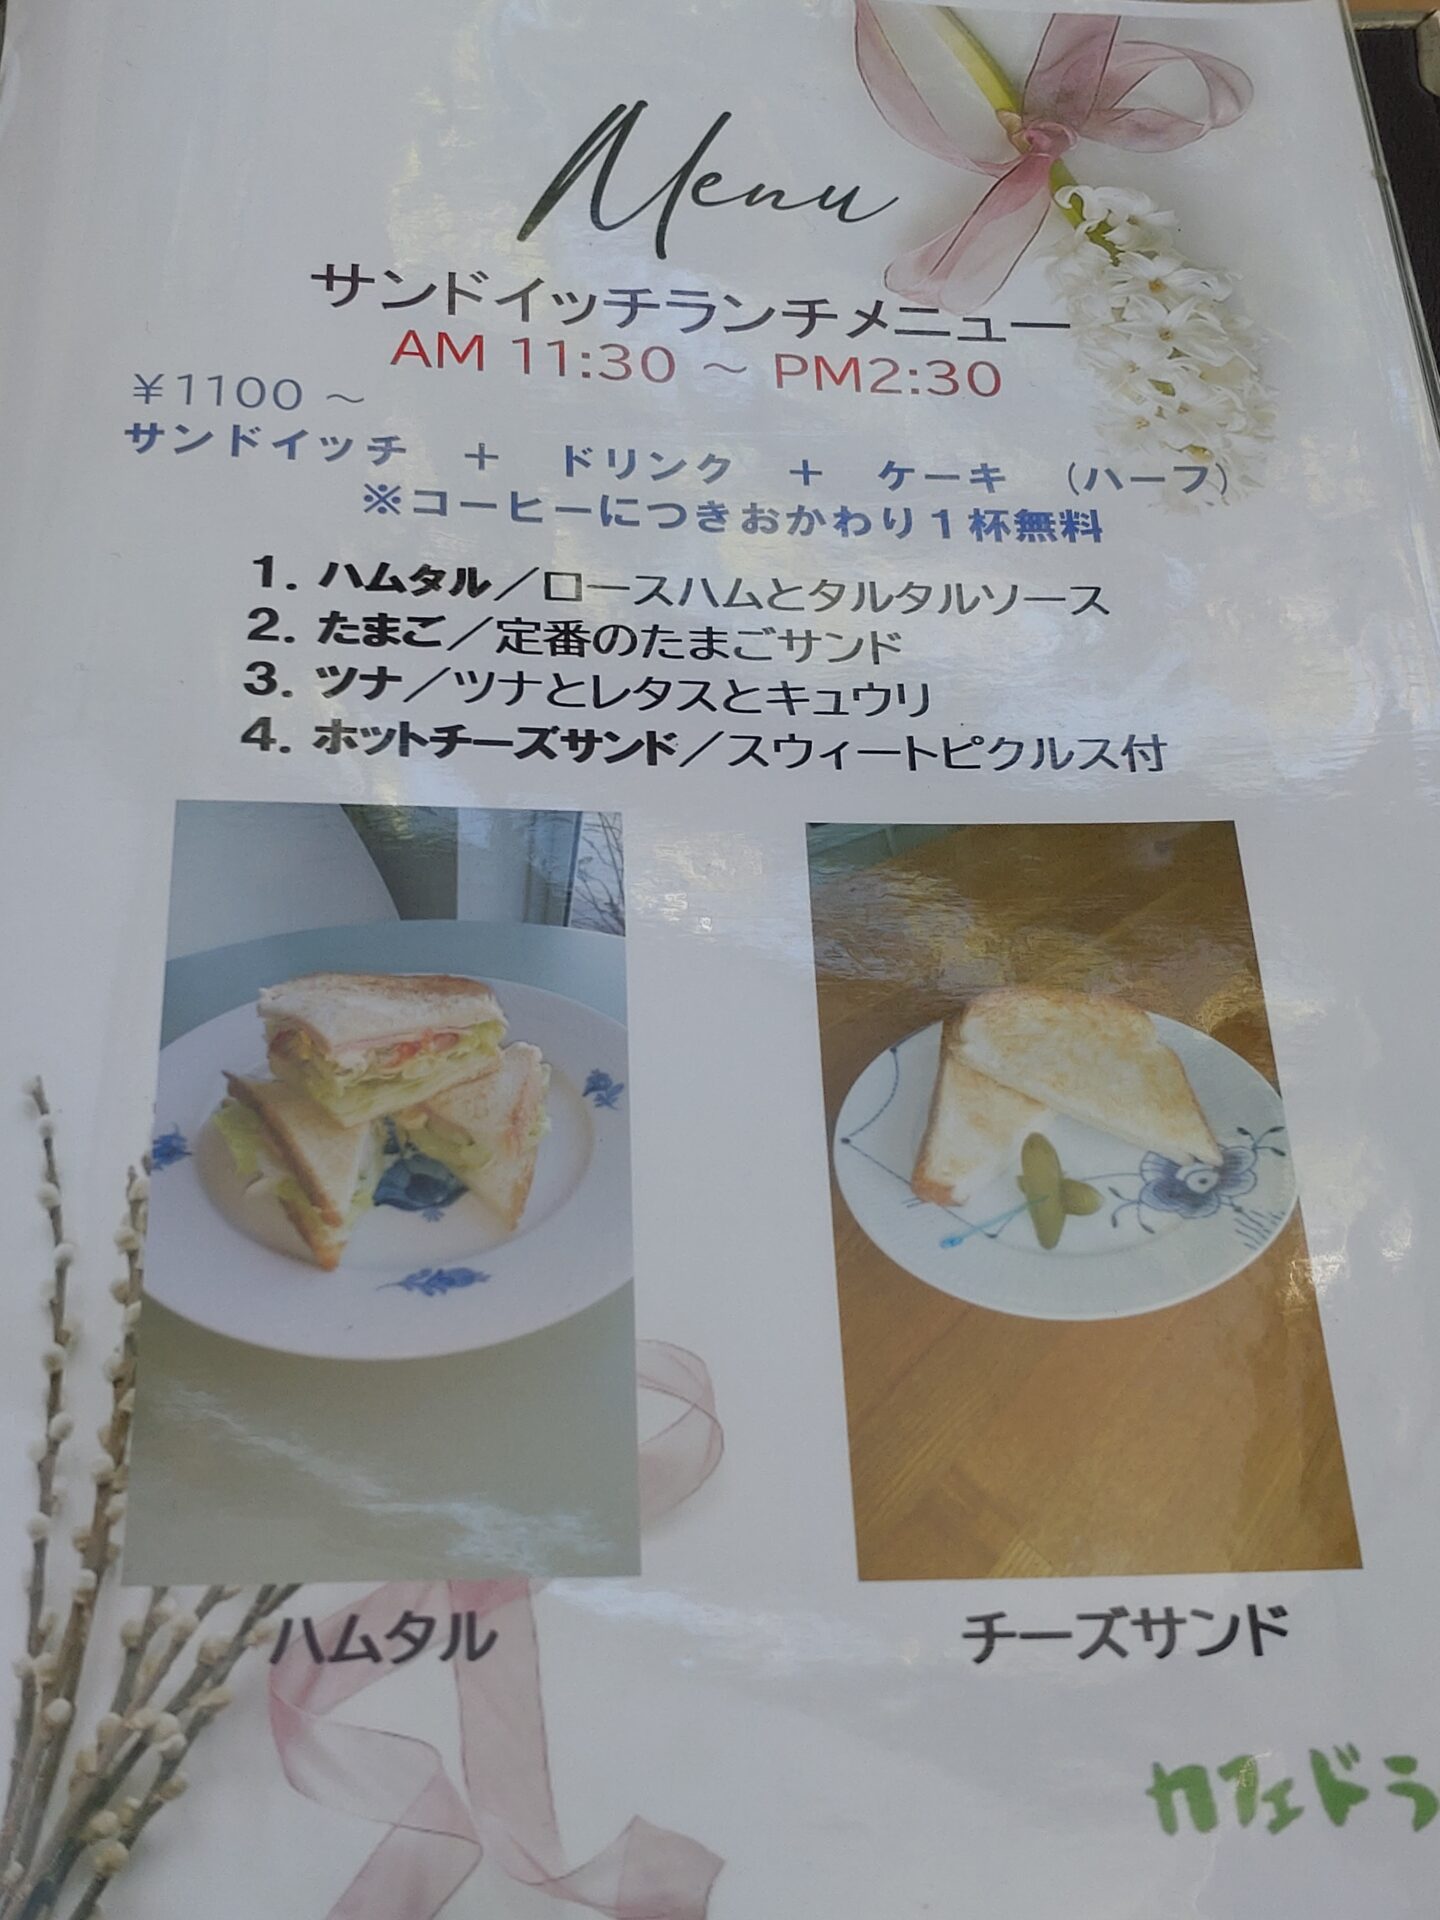 Menu
サンドイッチランチメニュー
AM 11:30 ～ PM2:30
￥1100 ～
サンドイッチ ＋ ドリンク ＋ ケーキ （ハーフ）
※コーヒーにつきおかわり１杯無料
1. ハムタル／ロースハムとタルタルソース
2. たまご／定番のたまごサンド
3. ツナ／ツナとレタスとキュウリ
4. ホットチーズサンド／スウィートピクルス付
ハムタル
チーズサンド
カフェドラ